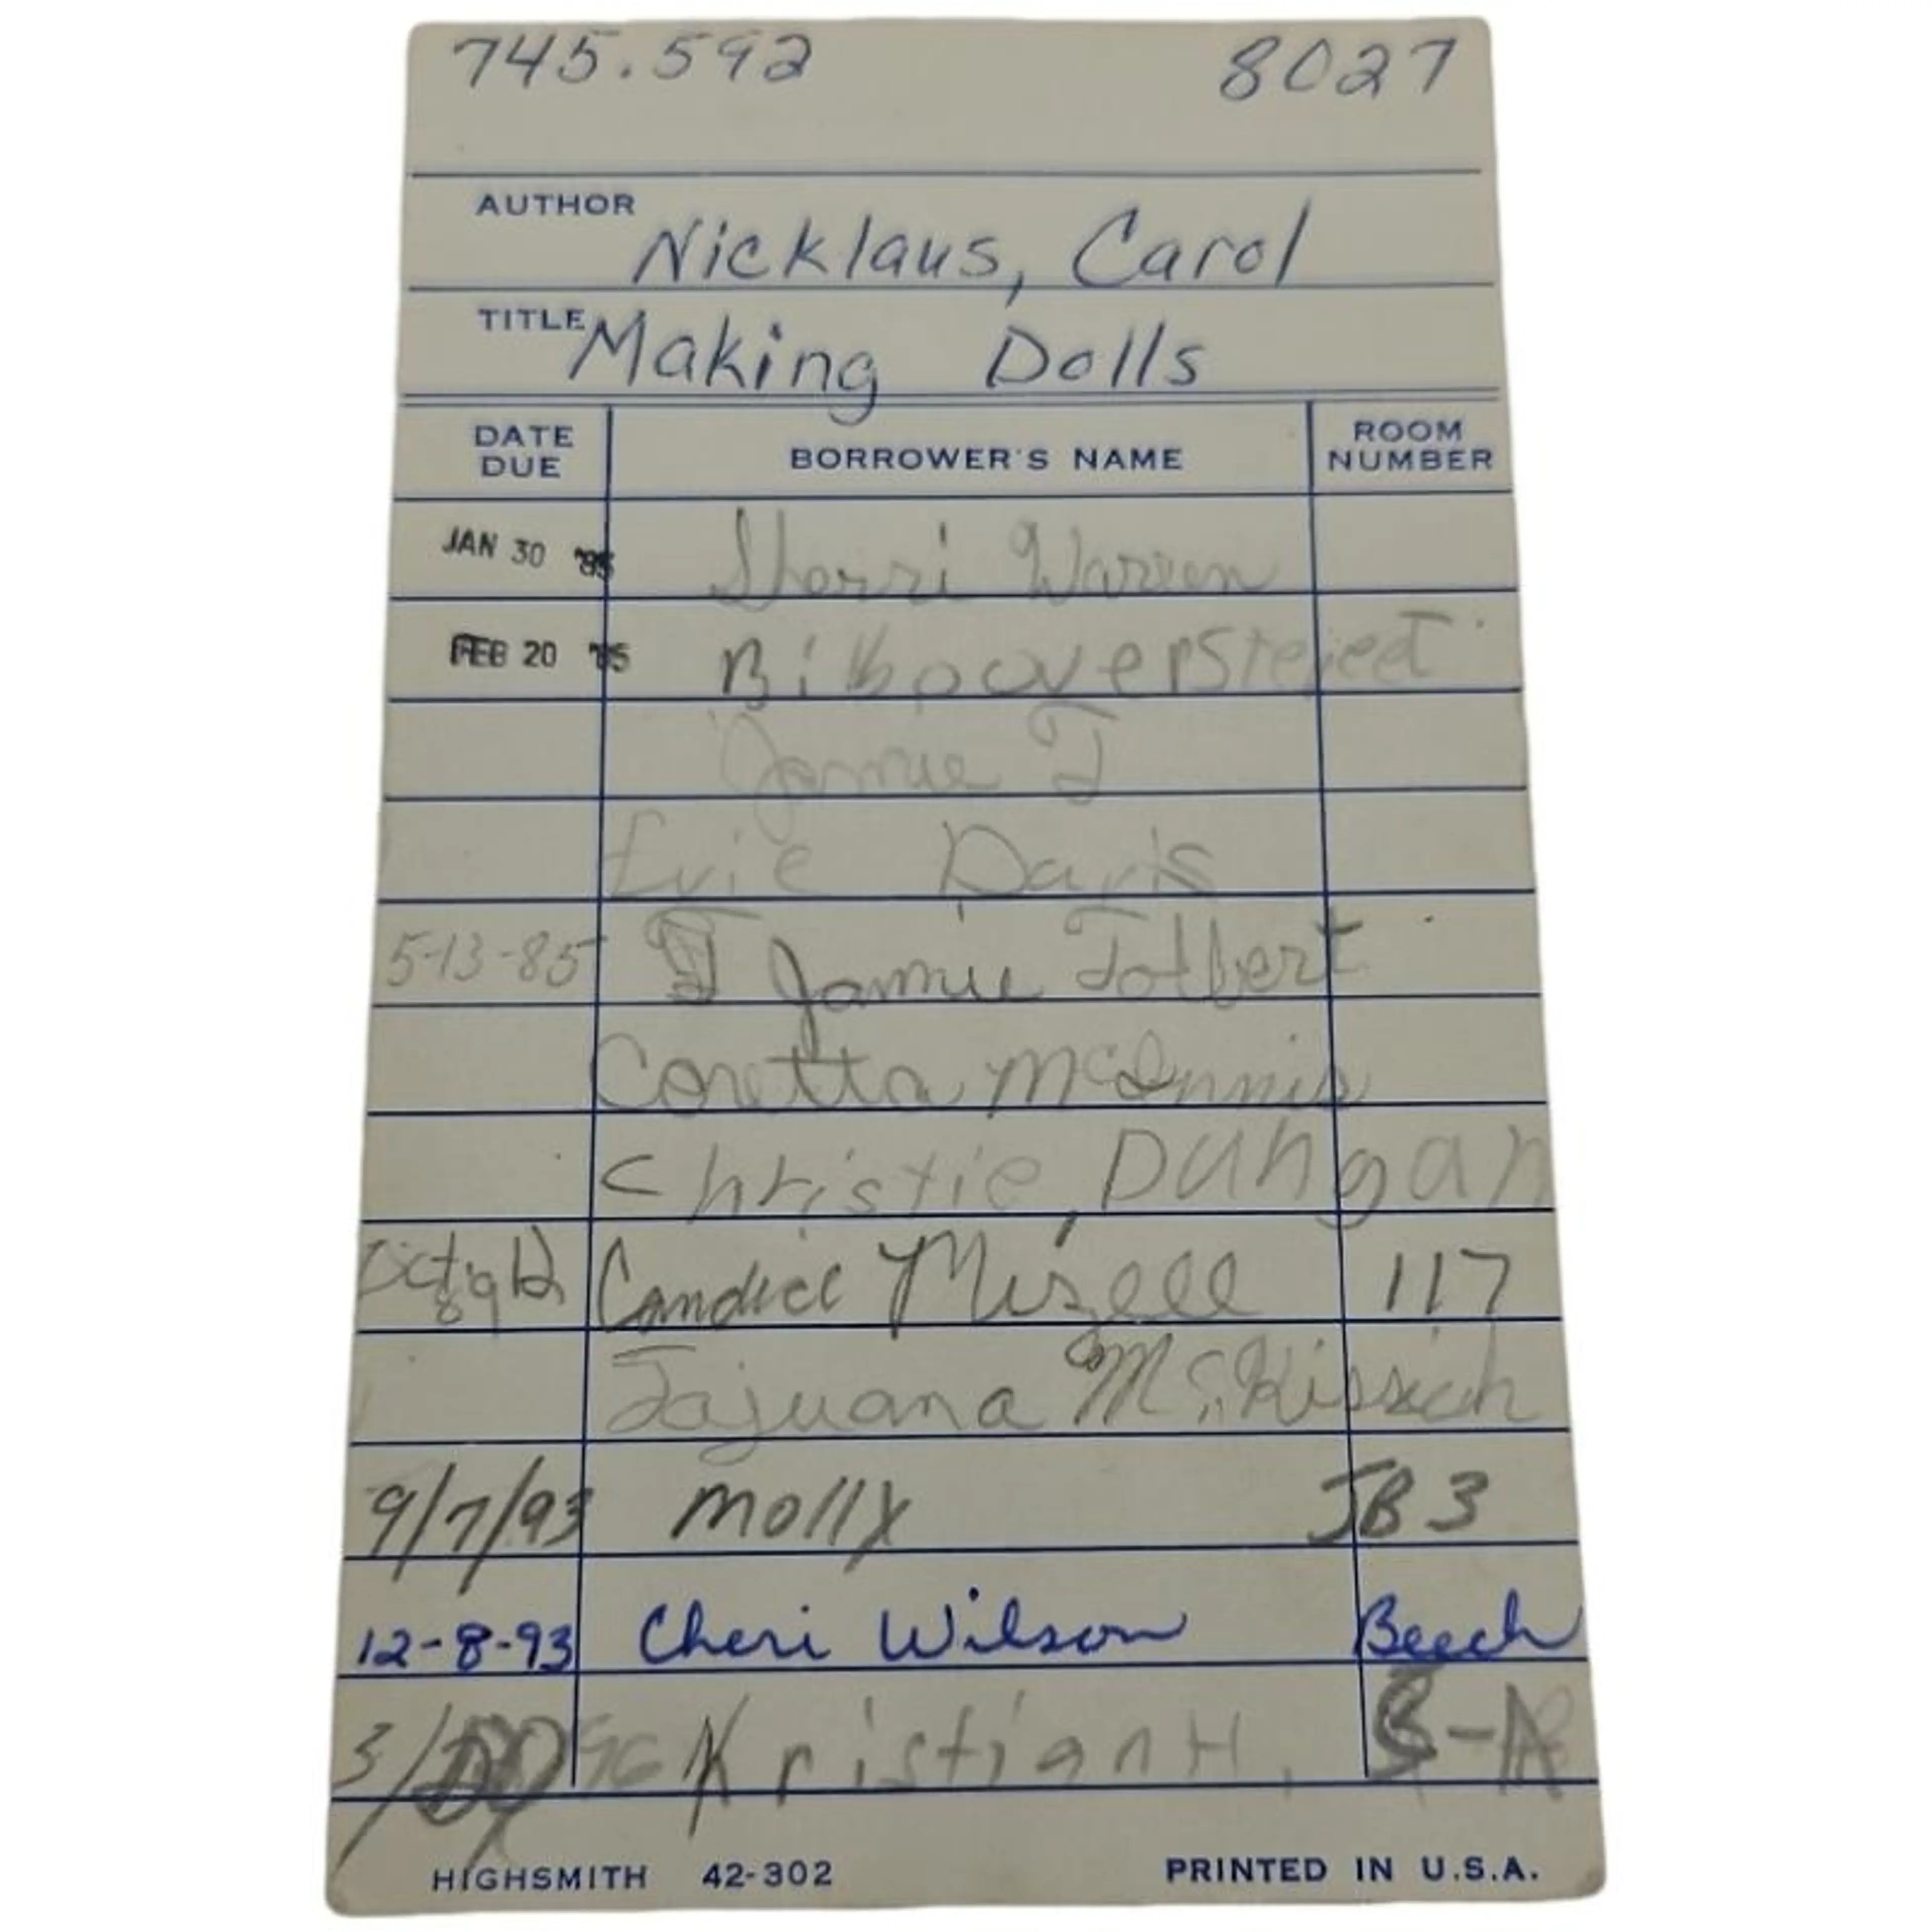 745.592 8027
AUTHOR Nicklaus, Carol
TITLE Making Dolls
DATE DUE BORROWER'S NAME ROOM NUMBER
JAN 30 '85 Sherri Warren
FEB 20 '85
Jamie T
Evie Davis
5-13-85 Jamie Tolbert
Coretta McInnis
Christie Dungan
Oct 12 89 Candice Mizell 117
Tajuana
9/7/93 Molly JB 3
12-8-93 Cheri Wilson Beech
3/ 96 Kristian H.
HIGHSMITH 42-302 PRINTED IN U.S.A.